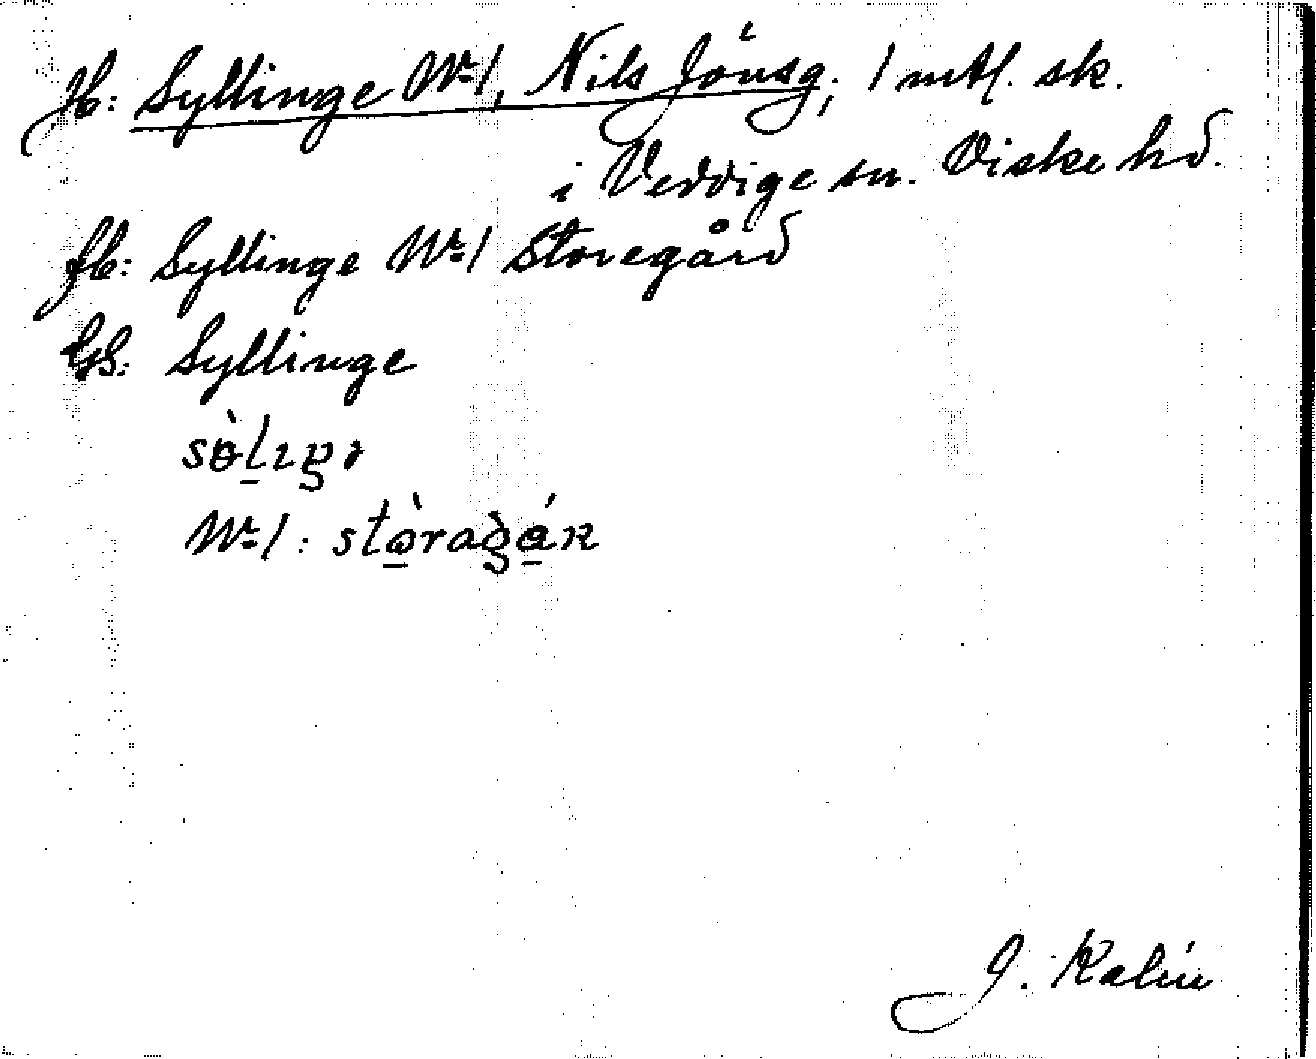 Jb: Syllinge Nr 1, Nils Jönsg; 1 mtl. sk.
i Veddige sn. Viske hd.
fb: Syllinge Nr 1 Storegård
GS: Syllinge
Nr 1:
J. Kalén